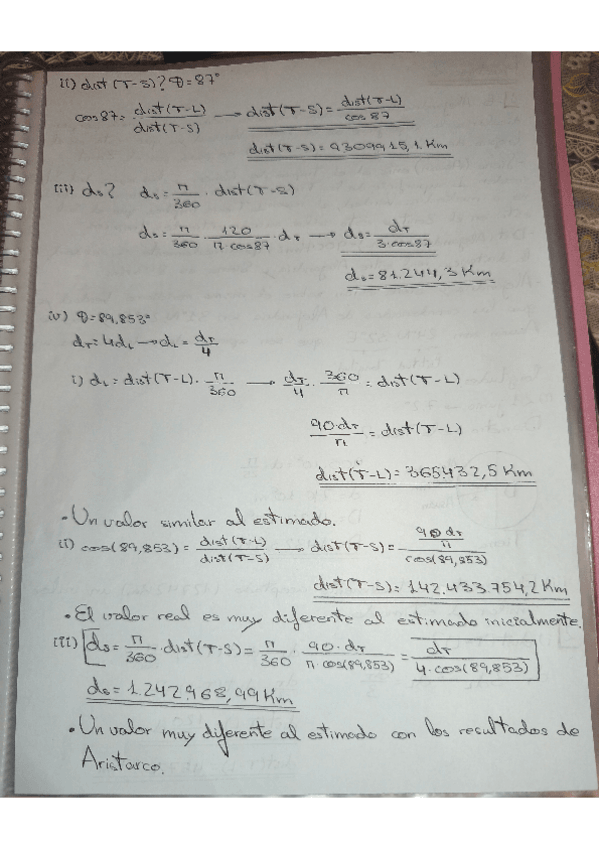 ii) dist (T-S)? Φ=87°
cos87= dist(T-L)/dist(T-S) → dist(T-S)= dist(T-L)/cos87
dist(T-S)=9309915,1 Km
iii) ds? ds= π/360 · dist(T-S)
ds= π/360 · 120/π·cos87 · dT → ds= dT/3·cos87
ds=81.244,3 Km
iv) Φ=89,853°
dT=4dL → dL= dT/4
i) dL=dist(T-L)· π/360 → dT/4 · 360/π = dist(T-L)
90·dT/π = dist(T-L)
dist(T-L)=365432,5 Km
· Un valor similar al estimado.
ii) cos(89,853)= dist(T-L)/dist(T-S) → dist(T-S)= 90dT/π/cos(89,853)
dist(T-S)=142.433.754,2 Km
· El valor real es muy diferente al estimado inicialmente.
iii) ds= π/360 · dist(T-S)= π/360 · 90·dT/π·cos(89,853) = dT/4·cos(89,853)
ds=1.242.968,99 Km
· Un valor muy diferente al estimado con los resultados de
Aristarco.